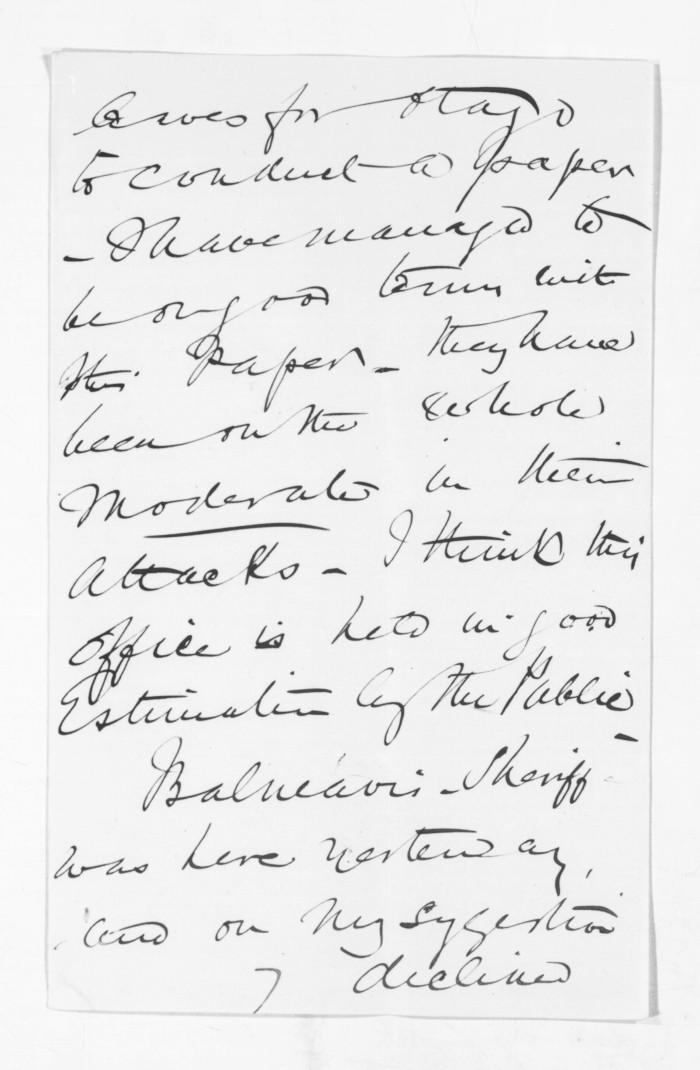 leaves for Otago
to conduct a paper
- I have managed to
be on good terms with
this Paper - they have
been on the whole
Moderate in their
Attacks - I think this
Office is held in good
Estimation by the Public -
Balneavis - Sheriff
was here yesterday,
and on my sygestion
declined